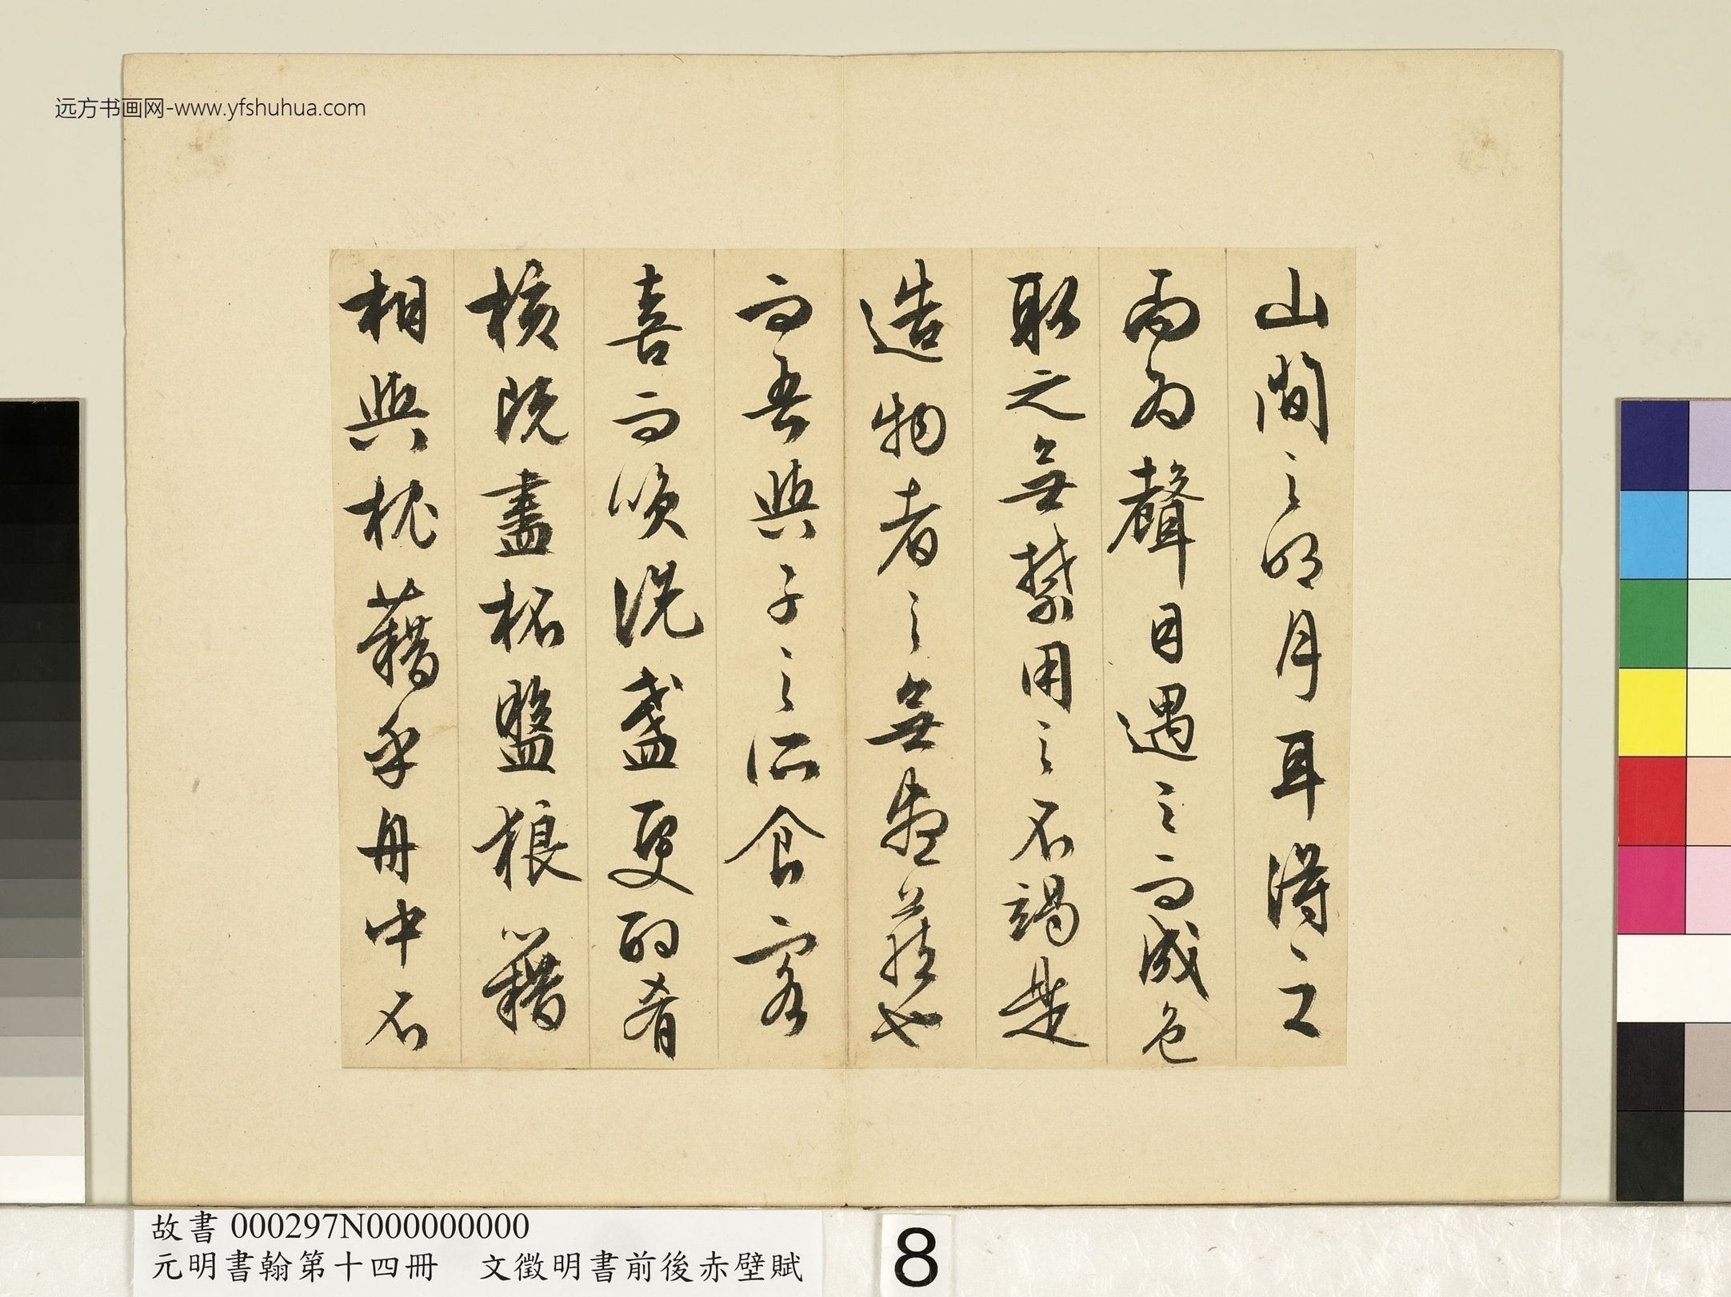 远方书画网-www.yfshuhua.com
山間之明月耳得之
而為聲目遇之而成色
取之無禁用之不竭是
造物者之無盡藏也
而吾與子之所食客
喜而咲洗盞更酌肴
核既盡杯盤狼籍
相與枕藉乎舟中不
故書 000297N000000000
元明書翰第十四冊 文徵明書前後赤壁賦
8